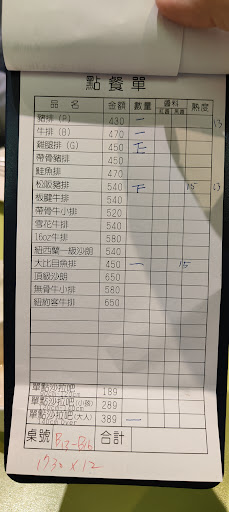 點餐單
品名 金額 數量 醬料 熟度
豬排 (P) 430 一 13
牛排 (B) 470 一
雞腿排 (G) 450
帶骨豬排 450
鮭魚排 470
松阪豬排 540 15 13
板腱牛排 540
帶骨牛小排 520
雪花牛排 540
16oz牛排 580
紐西蘭一級沙朗 540
大比目魚排 450 一 15
頂級沙朗 650
無骨牛小排 580
紐約客牛排 650
單點沙拉吧 189
單點沙拉吧(小孩) 289
單點沙拉吧(大人) 389 一
桌號 B12-B16 合計
173x × 12